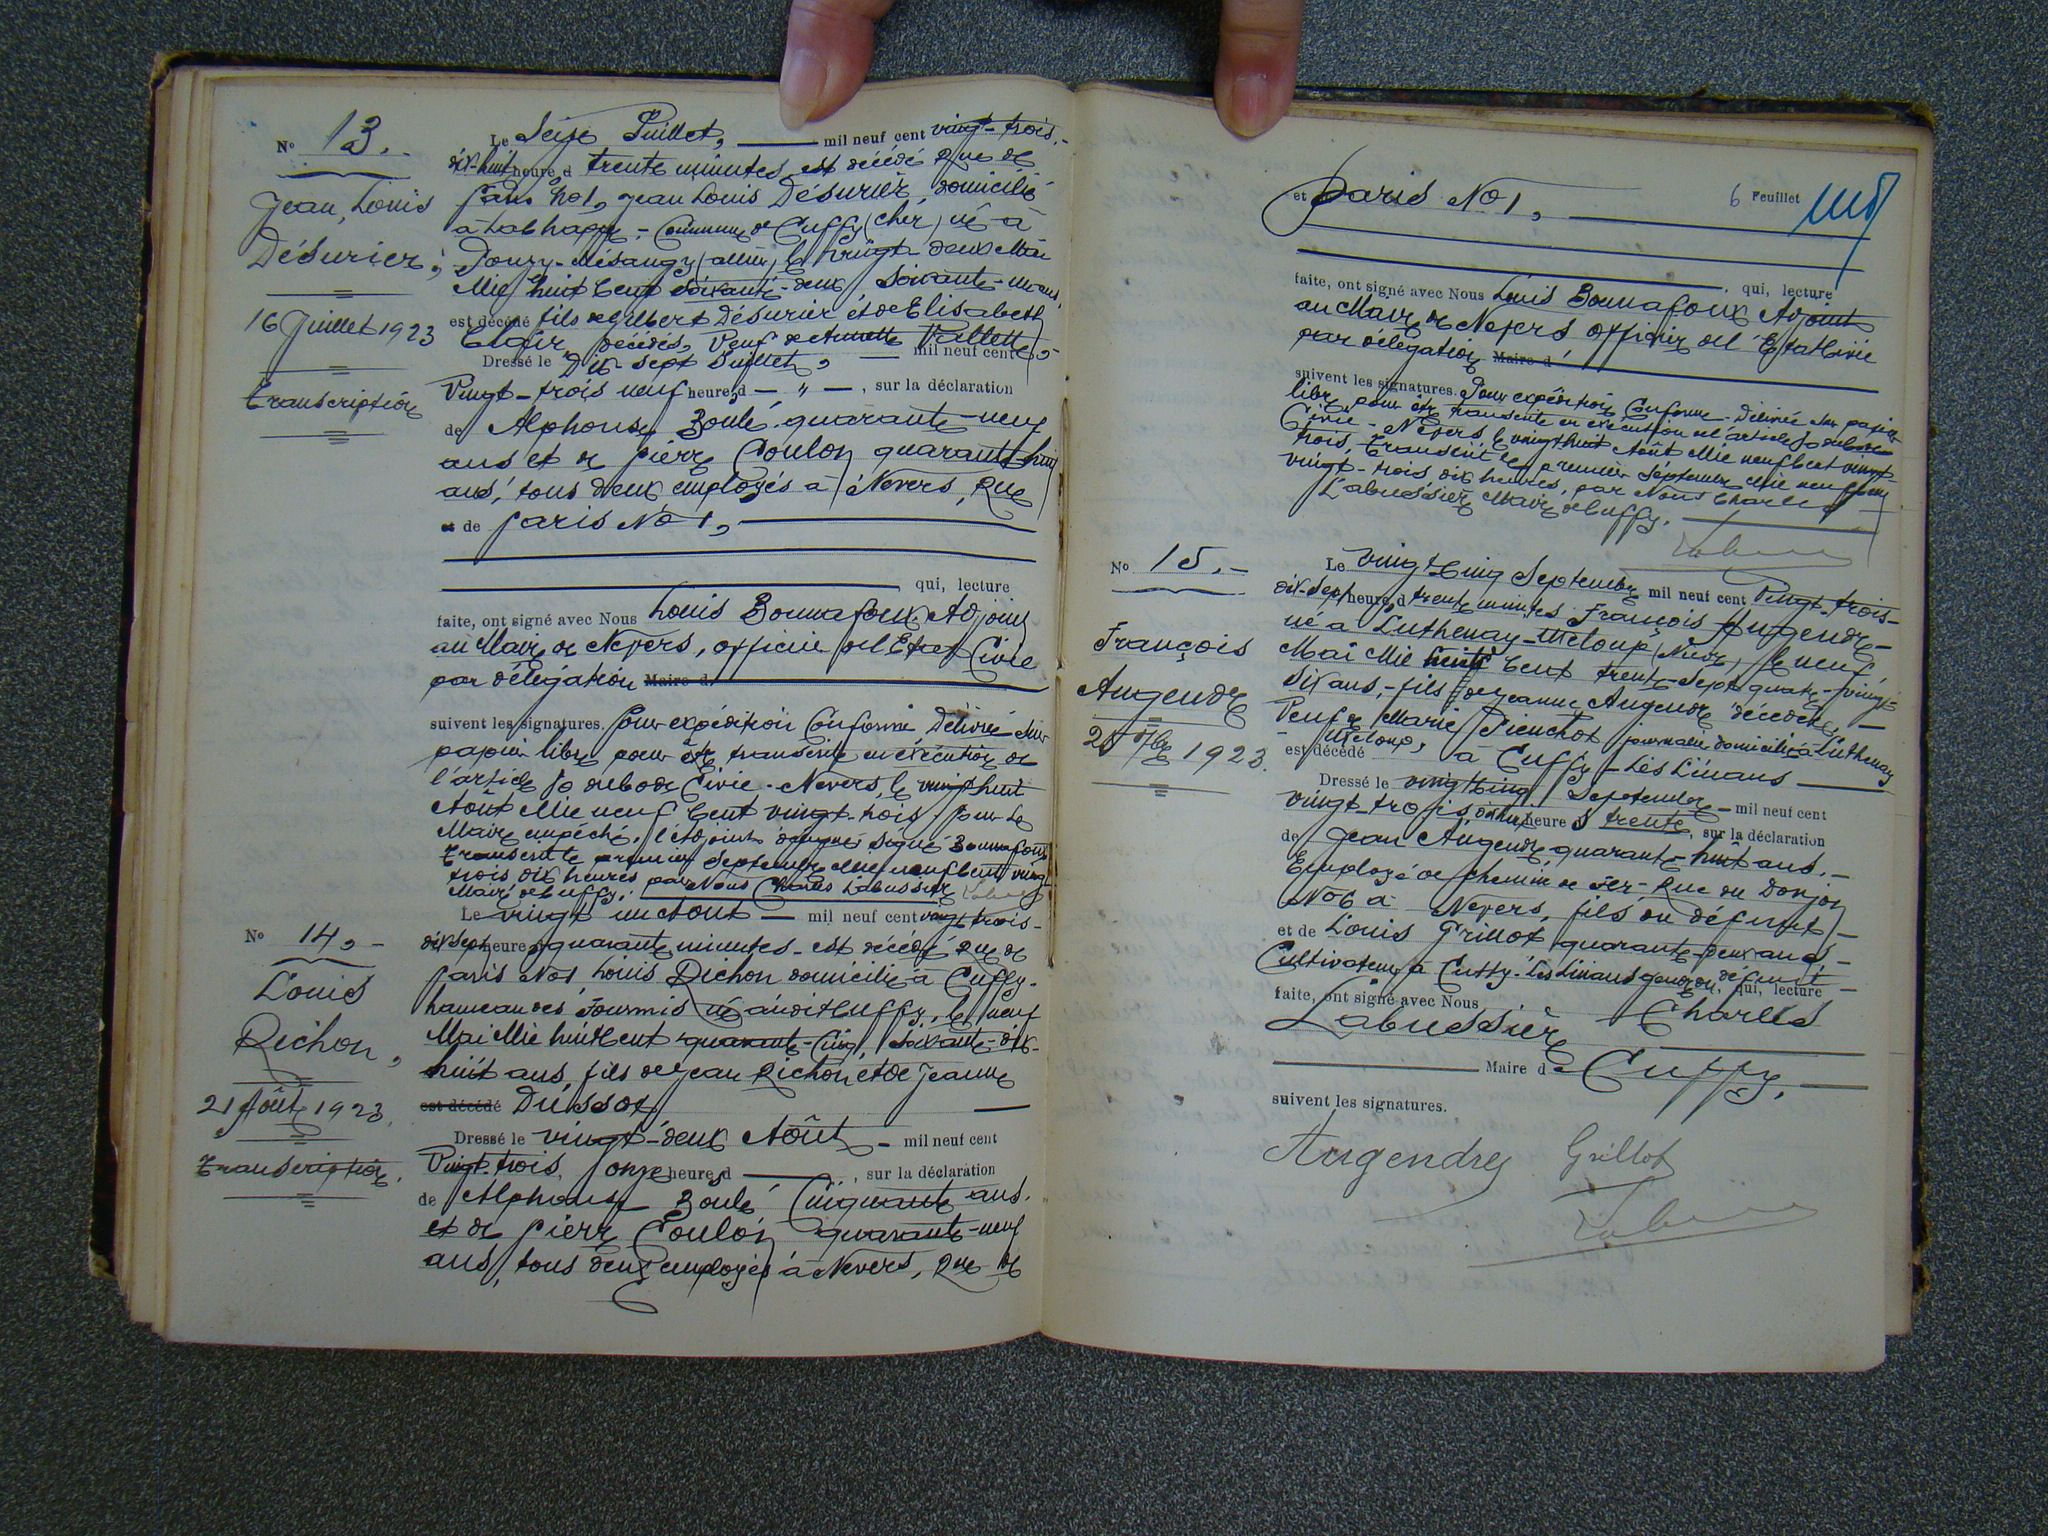 No 13.-
Jean, Louis
Désurier,
16 Juillet 1923
Transcription
Le Seize Juillet, mil neuf cent vingt-trois.-
dix-huit heure d trente minutes, est décédé Rue de
Paris No 1, Jean Louis Désurier, domicilié
à Lachappe, - Commune de Cuffy (Cher) né à
Pouzy-Mésangy (allier) le Vingt-deux Mai
Mil huit Cent soixante-deux, soixante-un ans,
est décédé fils de Gilbert Désurier et de Elisabeth
décédés, Veuf de Annette Vallette,-
Dressé le Dix-sept Juillet, mil neuf cent
Vingt-trois neuf heure d - " -, sur la déclaration
de Alphonse Boulé quarante-neuf
ans et de Pierre Coulon quarante-huit
ans, tous deux employés à Nevers, Rue
et de Paris No 1,
qui, lecture
faite, ont signé avec Nous Louis Bonnafoux, Adjoint
au Maire de Nevers, officier de l'Etat Civil
par délégation Maire d
suivent les signatures. Pour expédition Conforme Délivrée sur
papier libre pour être transcrite en exécution de
l'article 80 du Code Civil.- Nevers, le vingt huit
Août Mil neuf Cent vingt-trois. Pour le
Maire empêché, l'Adjoint délégué signé Bonnafoux
Transcrit le premier Septembre Mil neuf cent vingt
trois dix heures, par Nous Charles Labussière
Maire de Cuffy.
No 14,-
Louis
Richon,
21 Août 1923.
Transcription.
Le vingt un Août - mil neuf cent vingt trois-
dix sept heure d quarante minutes - est décédé Rue de
Paris No 1, Louis Richon domicilié à Cuffy-
hameau des Fourmis né au dit Cuffy, le neuf
Mai Mil huit Cent quarante-Cinq, soixante-dix-
huit ans, fils de Jean Richon et de Jeanne
est décédé Dussot
Dressé le vingt-deux Août - mil neuf cent
Vingt-trois, onze heure d, sur la déclaration
de Alphonse Boulé Cinquante ans.
et de Pierre Coulon quarante-neuf
ans, tous deux employés à Nevers, Rue de
et Paris No 1,
6 Feuillet
, qui, lecture
faite, ont signé avec Nous Louis Bonnafoux Adjoint
au Maire de Nevers officier de l'Etat Civil
par délégation Maire d
suivent les signatures. Pour expédition Conforme - Délivrée sur papier
libre pour être transcrite en exécution de l'article 80 du Code
Civil - Nevers, le vingt huit Août Mil neuf Cent vingt-
trois, Transcrit le premier Septembre Mil neuf cent
vingt-trois dix heures, par Nous Charles
Labussière Maire de Cuffy.
No 15.-
François
Augendre
25 7bre 1923.
Le vingt Cinq Septembre mil neuf cent Vingt-trois-
dix-sept heure d trente minutes François Augendre-
né à Luthenay-Uxeloup (Nièvre) le neuf
Mai Mil huit Cent trente-sept quatre-vingt-
six ans,- fils de Jeanne Augendre décédée, -
Veuf de Marie Pienchot journalier domicilié à Luthenay
Uxeloup,
est décédé à Cuffy - Les Lénans
Dressé le vingt Cinq Septembre - mil neuf cent
vingt-trois, heure s trente, sur la déclaration
de Jean Augendre quarante-huit ans.-
Employé de chemin de fer - Rue du Donjon
No 6 à Nevers, fils du défunt -
et de Louis Grillot quarante-deux ans -
Cultivateur à Cuffy - Les Lénans gendre du défunt -
, qui, lecture
faite, ont signé avec Nous Charles
Labussière
Maire de Cuffy,
suivent les signatures.
Augendre Grillot